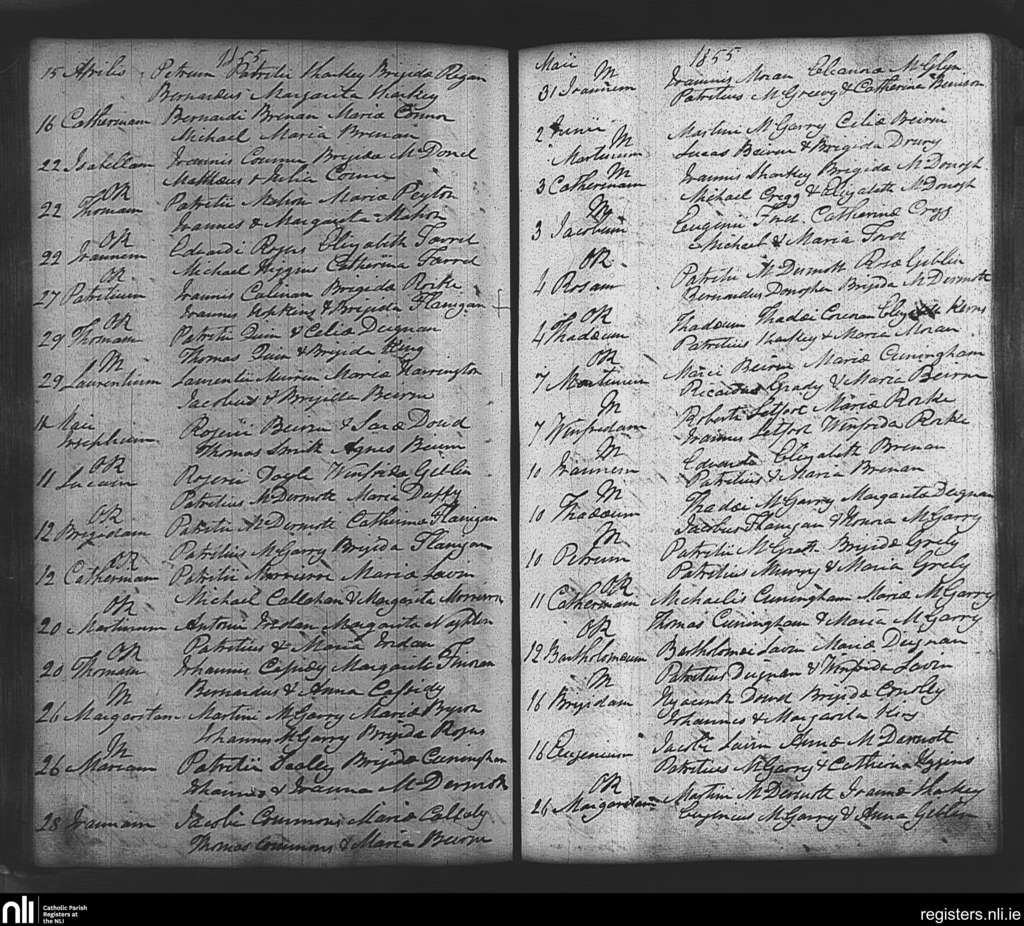 1855
15 Aprilis Petrum Patritii Sharkey Brigida Regan
Bernardus Margarita Sharkey
16 Catherinam Bernardi Brenan Maria Connor
Michael Maria Brenan
22 Isabellam Joannis Connor Brigida McDond
Mattheus & Julia Connor
OR
22 Thomam Patritii Mahon Maria Peyton
Joannes & Margarita Mahon
OR
22 Joannem Edvardi Rogus Elizabeth Farrel
Michael Higgins Catherina Farrel
OR
27 Patritium Joannis Calinan Brigida Rorke
Joannes Hopkins & Brigida Flanigan
OR
29 Thomam Patritii Quin & Celia Deignan
Thomas Quin & Brigida King
M
29 Laurentium Laurentii Muiren Maria Harrington
Jacobus & Brigida Beirne
Maii
Josephum Rogerii Beirne & Sara Doud
Thomas Smith Agnes Beirne
OR
11 Lucam Rogerii Doyle Winfrida Giblin
Patritius McDermott Maria Duffy
OR
12 Brigidam Patritii McDermott Catherina Flanigan
Patritius McGarry Brigida Flanigan
OR
12 Catherinam Patritii Morrison Maria Lavin
Michael Callahan & Margarita Morrison
OR
20 Martinum Antonii Iredan Margarita
Patritius & Maria Iredan
OR
20 Thomam Johannis Cassidy Margarita
Bernardus & Anna Cassidy
M
26 Margaritam Martini McGarry Maria Byron
Johannes McGarry Brigida Rogus
M
26 Mariam Patritii Dooley Brigida Cuningham
Johannes & Joanna McDermott
28 Joannam Jacobi Commons Maria
Thomas Commons & Maria Beirne
Maii 1855
M
31 Joannem Joannis Moran Eleanora McGlyn
Patritius McGreevy & Catherina Benison
2 Junii
M
Martinum Martini McGarry Celia Beirne
Lucas Beirne & Brigida Drury
M
3 Catherinam Joannis Sharkey Brigida McDonogh
Michael Cregg & Elizabeth McDonogh
M
3 Jacobum Eugenii Ford Catherina Cregg
Michael & Maria Ford
OR
4 Rosam Patritii McDermott Rosa Giblin
Bernardus Donoghu Brigida McDermott
OR
4 Thadæum Thadæum Thadei Cuenan Kerns
Patritius Sharkey & Maria Moran
OR
7 Martinum Beirne Maria Cuningham
Ricardus Grady & Maria Beirne
M
7 Winfredam Roberti Letfort Maria Rorke
Joannes Letfort Winfrida Rorke
M
10 Joannem Edvardi Elizabeth Brenan
Patritius & Maria Brenan
M
10 Thadæum Thadei McGarry Margarita Deignan
Jacobus Flanigan & Honora McGarry
M
10 Petrum Patritii McGrath Brigida Grely
Patritius Murry & Maria Grely
OR
11 Catherinam Michaelis Cuningham Maria McGarry
Thomas Cuningham & Maria McGarry
OR
12 Bartholomæum Bartholomei Lavin Maria Deignan
Patritius Deignan & Winfrida Lavin
M
16 Brigidam Hyacinth Doud Brigida Conolly
Johannes & Margarita
16 Eugenium Jacobi Lavin Anna McDermott
Patritius McGarry & Catherina Higgins
OR
26 Margaritam Martini McDermott Joanna Sharkey
Eugenius McGarry & Anna Giblin
nli
Catholic Parish
Registers at
the NLI
registers.nli.ie